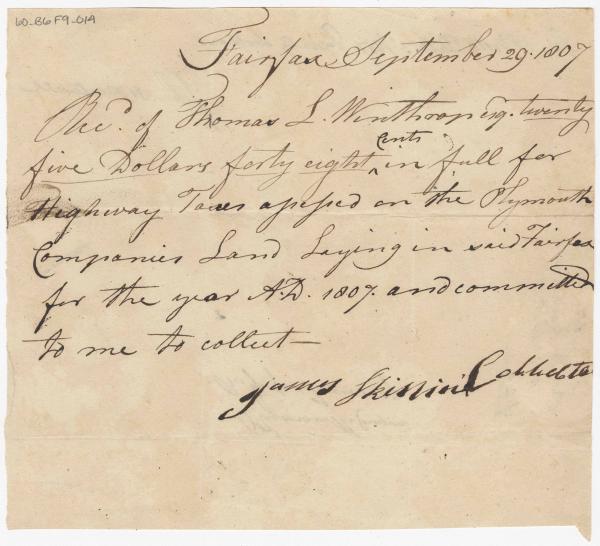 60-B6F9-014
Fairfax September 29. 1807
Rec.d of Thomas L. Winthrop Esq. twenty
five Dollars forty eight Cents in full for
Highway Taxes assessed on the Plymouth
Companies Land Laying in said Fairfax
for the year A.D. 1807. and committed
to me to collect—
James Collector